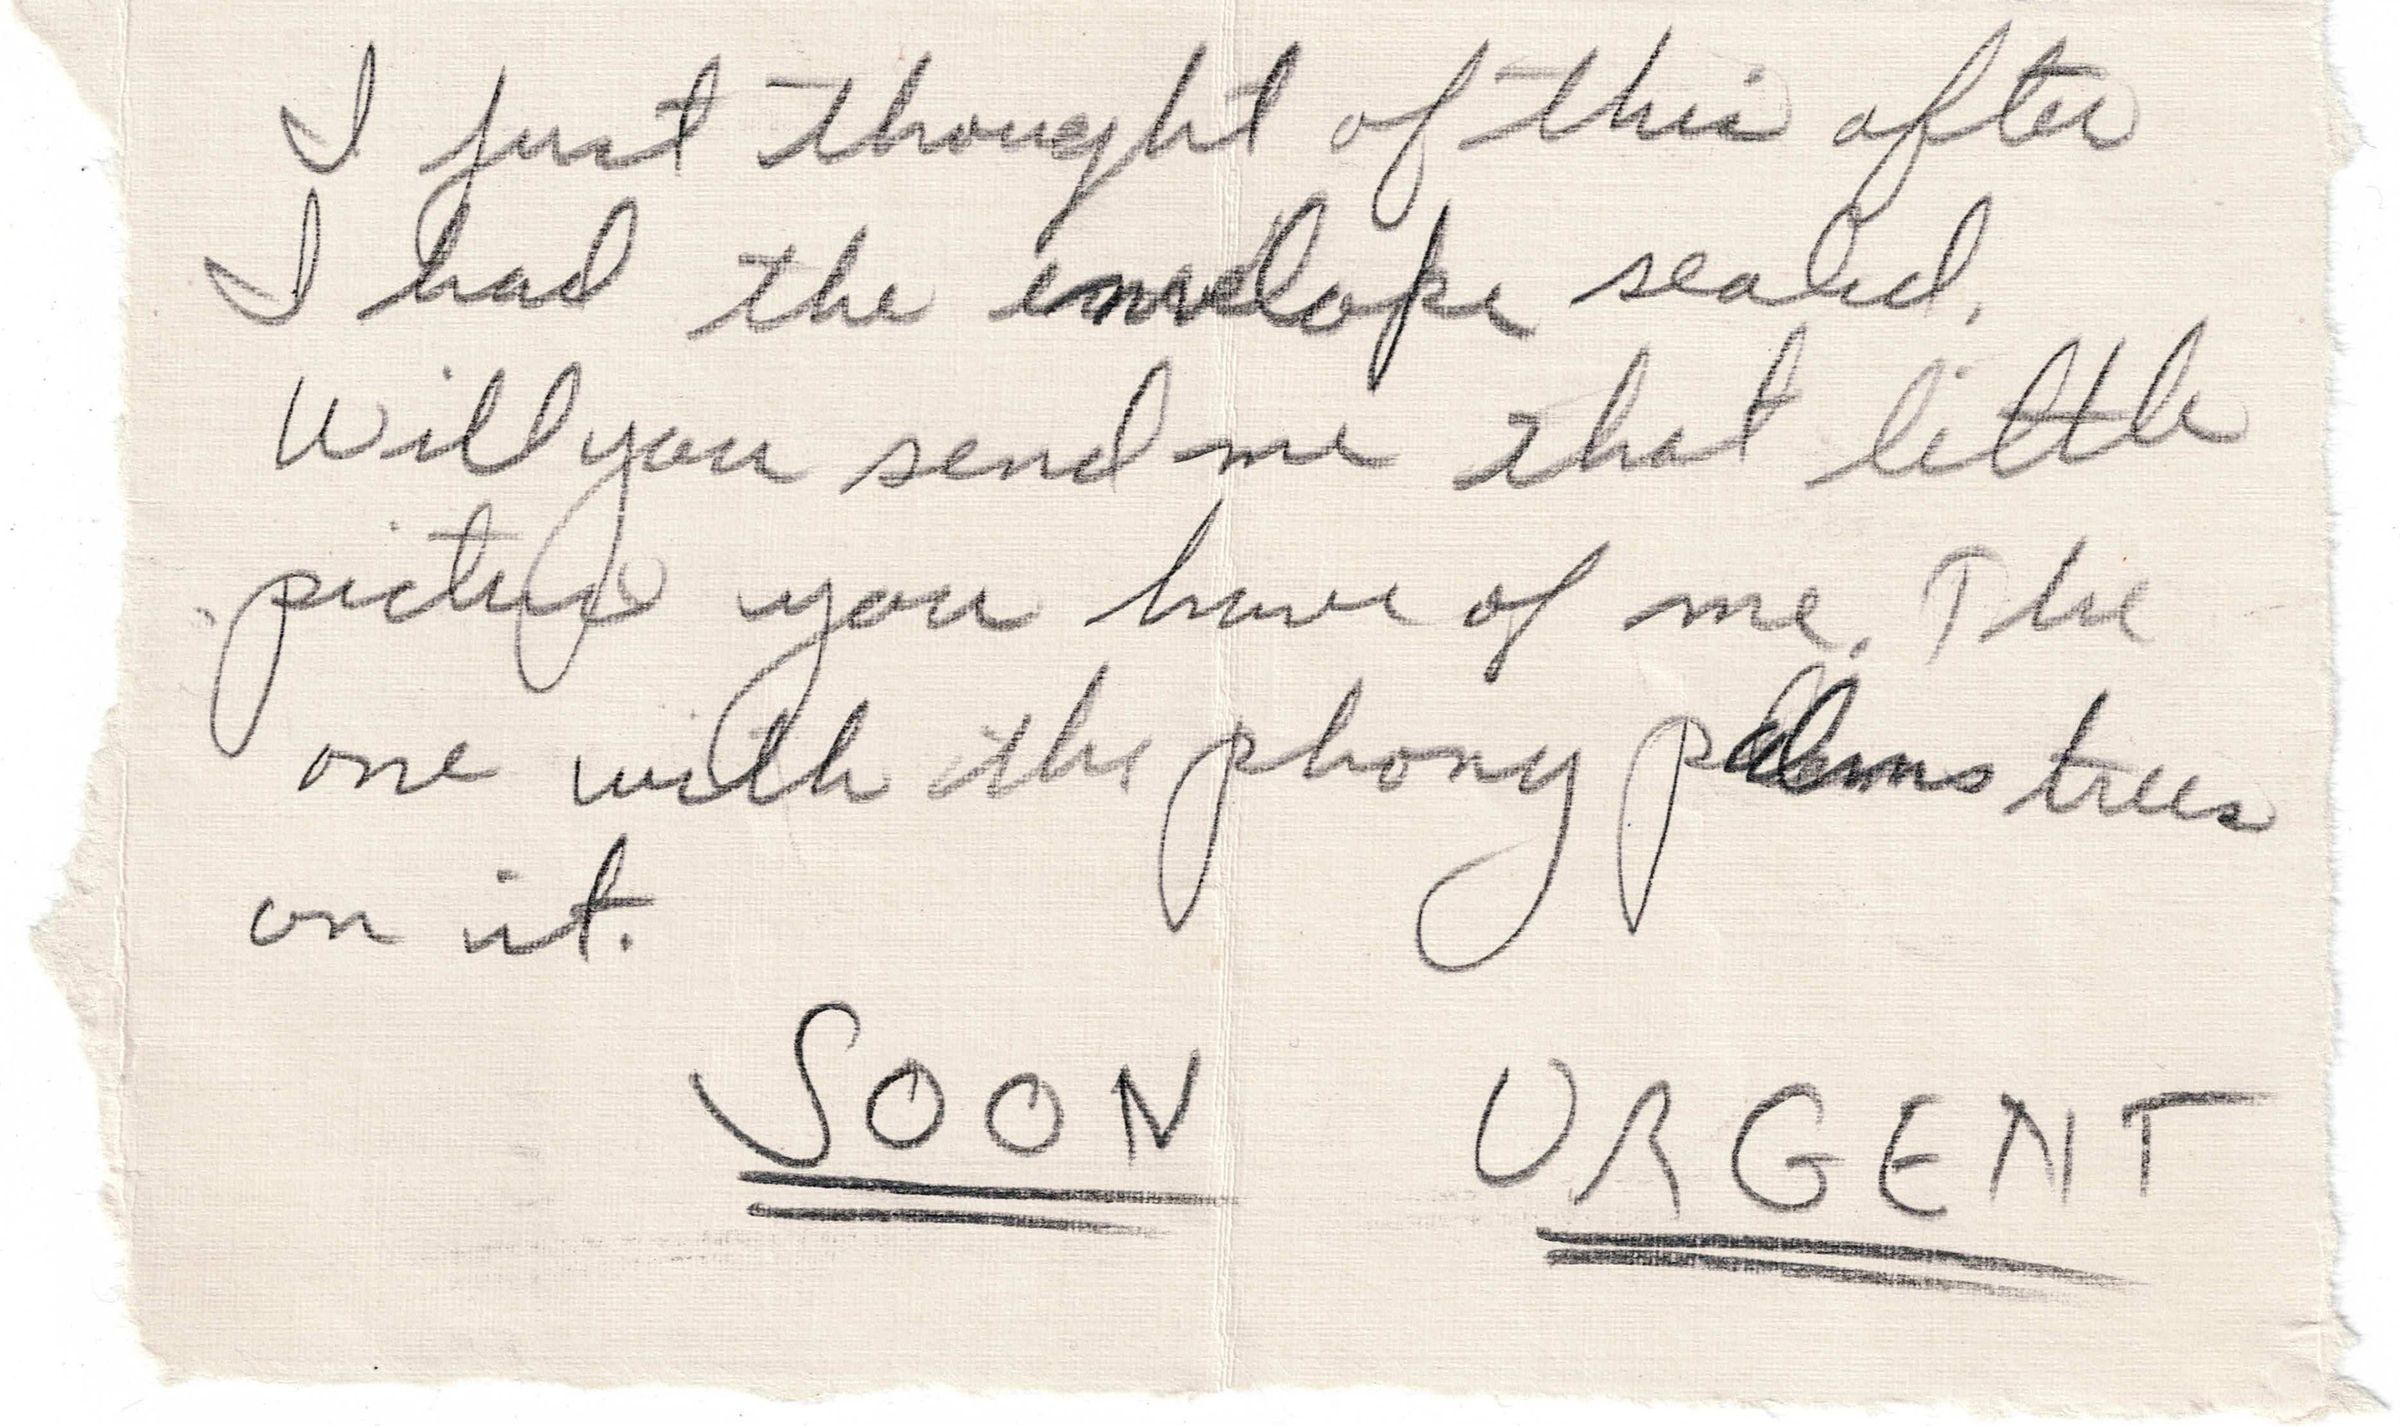 I just thought of this after
I had the envelope sealed.
Will you send me that little
picture you have of me. The
one with the phony palms trees
on it.
SOON URGENT